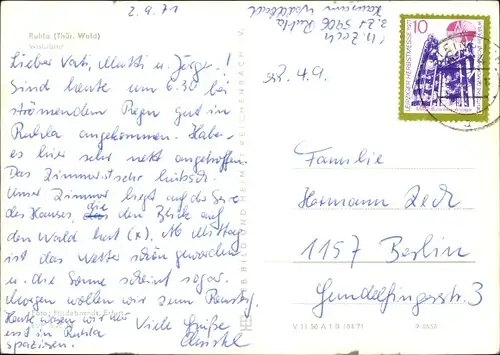 2.9.71
Ruhla (Thür. Wald)
Waldbad
Lieber Vati, Mutti u. Jürgen!
Sind heute um 6.30 bei
strömendem Regen gut in
Ruhla angekommen. Habe-
es hier sehr nett angetroffen.
Das Zimmer ist sehr hübsch.
Unser Zimmer liegt auf der Seite
des Hauses, die den Blick auf
den Wald hat (x). Ab Mittag
ist das Wetter schön geworden
u. die Sonne scheint sogar.
Morgen wollen wir zum Rennstg.
Heute waren wir nur
erst in Ruhla
spazieren.
Viele Grüße
Christel
Foto: Hildebrandt, Erfurt
BILD UND HEIMAT REICHENBACH V.
V 11 50 A 1 B (84/71) 9-3652
5906 Ruhla
erh. 4.9.
10
LEIPZIGER HERBSTMESSE 1971
DDR
Familie
Hermann Zech
1157 Berlin
Gundelfingerstr. 3